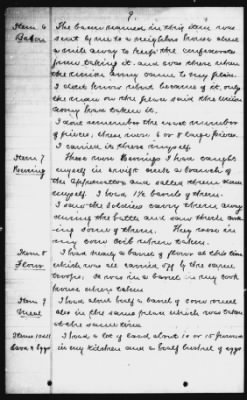 9
Item 6 The bacon named in this item was
Bacon sent by me to a neighbors house about
a mile away to keep the confederates
from taking it. and was there when
the union army came to my place.
I dont know what became of it, only
the man on the place said the union
army had taken it.
I dont remember the exact number
of pieces, there were 6 or 8 large pieces.
I carried it there myself.
Item 7 These were Herrings I had caught
Herring myself in a a branch
of the Appomattox and salted them down
myself. I had 1½ barrels of them.
I saw the soldiers carry them away
during the battle and saw them
some of them. They were in
my corn crib when taken.
Item 8 I had nearly a barrel of flour at this time
Flour which was all carried off by the same
troops. It was in a barrel in my
house when taken
Item 9 I had about half a barrel of corn meal
Meal also in the same place which was taken
at the same time.
Items 10 & 11 I had a lot of lard about 10 or 15 pounds
Lard & Eggs in my kitchen and a half bushel of eggs